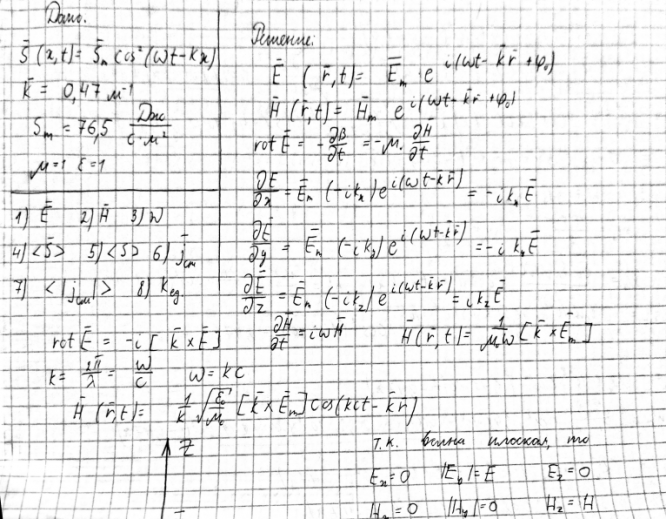 Дано.
S̄ (x,t) = S̄ₘ cos²(ωt - kx)
k̄ = 0,47 м⁻¹
Sₘ = 76,5 Дж/(с·м²)
μ=1 ε=1
1) Ē 2) H̄ 3) w
4) <S̄> 5) <S> 6) j̄см
7) <|j̄см|> 8) kед.
Решение:
Ē (r̄,t) = Ēₘ e^{i(ωt - k̄r̄ + φ₀)}
H̄ (r̄,t) = H̄ₘ e^{i(ωt - k̄r̄ + φ₀)}
rot Ē = - ∂B̄/∂t = -μ₀ ∂H̄/∂t
∂Ē/∂x = Ēₘ (-ikₓ) e^{i(ωt - k̄r̄)} = -ikₓĒ
∂Ē/∂y = Ēₘ (-ik_y) e^{i(ωt - k̄r̄)} = -ik_yĒ
∂Ē/∂z = Ēₘ (-ik_z) e^{i(ωt - k̄r̄)} = ik_zĒ
∂H̄/∂t = iωH̄ H̄(r̄,t) = 1/(μ₀ω) [k̄ × Ēₘ]
rot Ē = -i [k̄ × Ē]
k = 2π/λ = ω/c ω = kc
H̄ (r̄,t) = 1/k √(ε₀/μ₀) [k̄ × Ēₘ] cos(kct - k̄r̄)
z
т.к. волна плоская, то
Eₓ=0 |E_y|=E E_z=0
Hₓ=0 |H_y|=0 H_z=H